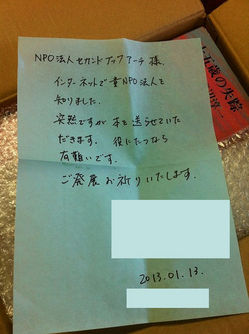 NPO法人セカンドアックアーチ 様.
インターネットで貴NPO法人を
知りました.
突然ですが 本を送らせていた
だきます. 役にたつなら
有難いです.
ご発展お祈りいたします.
2013.01.13.
五歳の失踪